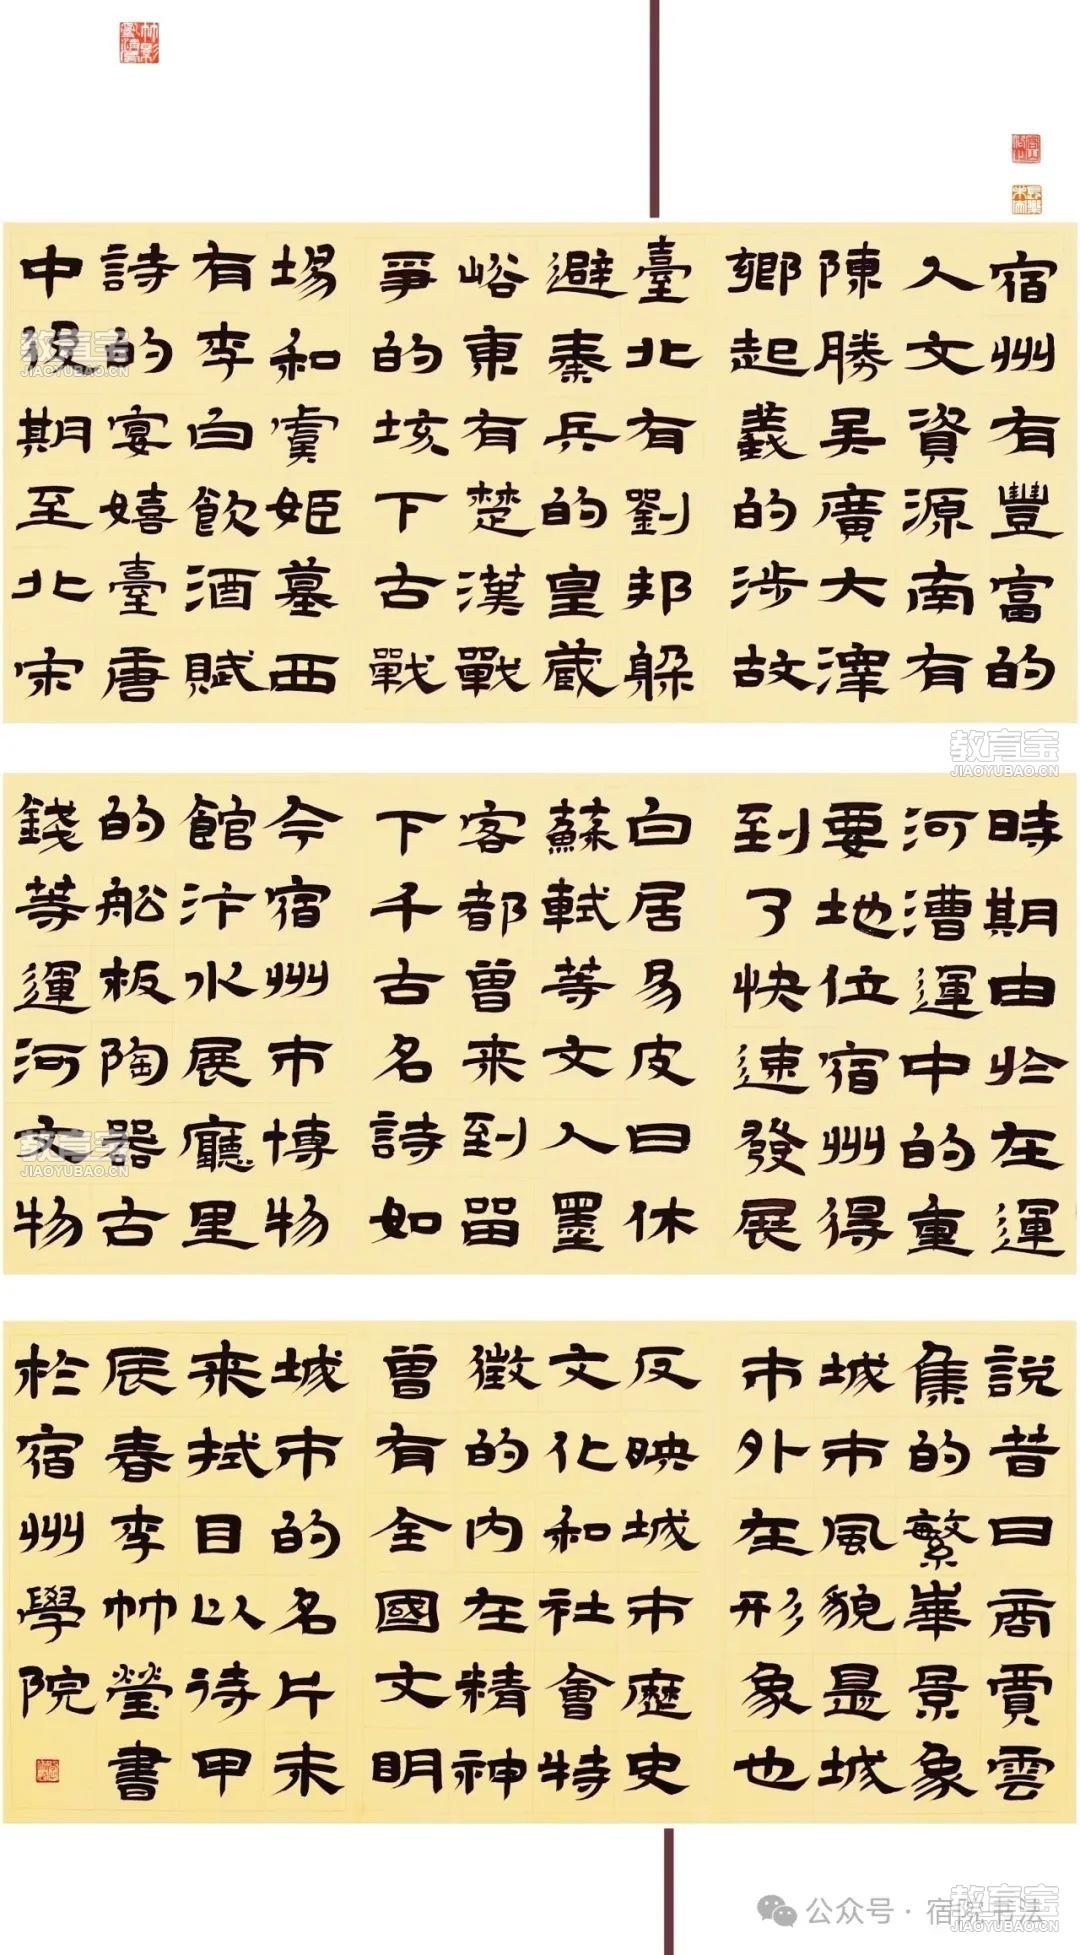 宿州有豐富的
人文資源南有
陳勝吳廣大澤
鄉起義的涉故
臺北有劉邦躲
避秦兵的皇藏
峪東有楚漢戰
爭的垓下古戰
場和虞姬墓西
有李白飲酒賦
詩的宴嬉臺唐
中後期至北宋
時期由於在運
河漕運中的重
要地位宿州得
到了快速發展
白居易皮日休
蘇軾等文人墨
客都曾来到留
下千古名詩如
今宿州市博物
館汴水展廳里
的船板陶器古
錢等運河文物
說昔日商賈雲
集的繁華景象
城市風貌是城
市外在形象也
反映城市歷史
文化和社會特
徵的內在精神
曾有全國文明
城市的名片未
来拭目以待甲
辰春李竹瑩書
於宿州學院
教育宝
JIAOYUBAO.CN
教育宝
JIAOYUBAO.CN
教育宝
JIAOYUBAO.CN
公众号·宿院书法
教育宝
JIAOYUBAO.CN